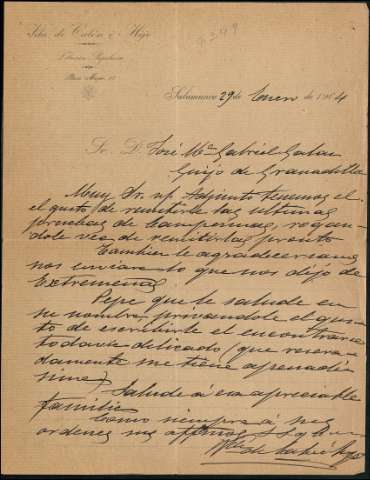 Vda. de Calón é Hijo
Librería Papelería
Plaza Mayor
Salamanca 29 de Enero de 1904
Sr. D. José Mª Gabriel Galan
Guijo de Granadilla
Muy Sr. nº Adjunto tenemos el
el gusto de remitirle las ultimas
pruebas de Campesinas, rogan-
dole vea de remitirlas pronto
Tambien le agradeceriamos
nos enviara lo que nos dijo de
Extremeñas
Pepe que le salude en
su nombre, privandole el gus-
to de escribirle el encontrarse
todavia delicado (que reserva-
damente me tiene apenadi-
simo)
Salude á esa apreciable
familia
Como siempre á sus
ordenes sus affmos
Vda. de Calón é Hijo